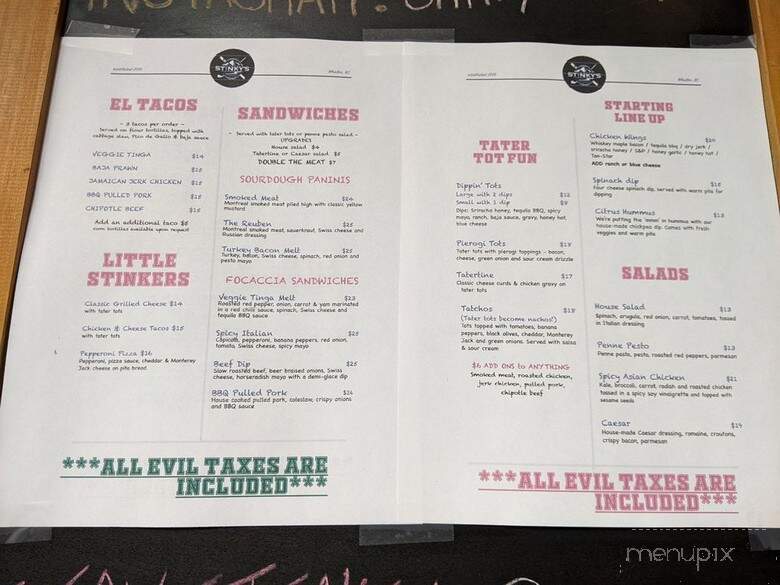 STINKY'S
EL TACOS
~ 3 tacos per order ~
Served on flour tortillas, topped with
cabbage slaw, Pico de Gallo & baja sauce
VEGGIE TINGA $14
BAJA PRAWN $15
JAMAICAN JERK CHICKEN $15
BBQ PULLED PORK $15
CHIPOTLE BEEF $15
Add an additional taco $5
corn tortillas available upon request
LITTLE
STINKERS
Classic Grilled Cheese $14
with tater tots
Chicken & Cheese Tacos $15
with tater tots
Pepperoni Pizza $16
Pepperoni, pizza sauce, cheddar & Monterey
Jack cheese on pita bread
SANDWICHES
~ Served with tater tots or penne pesto salad ~
UPGRADES
House salad $4
Tatertine or Caesar salad $5
DOUBLE THE MEAT $7
SOURDOUGH PANINIS
Smoked Meat $24
Montreal smoked meat piled high with classic yellow
mustard
The Reuben $25
Montreal smoked meat, sauerkraut, Swiss cheese and
Russian dressing
Turkey Bacon Melt $25
Turkey, bacon, Swiss cheese, spinach, red onion and
pesto mayo
FOCACCIA SANDWICHES
Veggie Tinga Melt $23
Roasted red pepper, onion, carrot & yam marinated
in a red chili sauce, spinach, Swiss cheese and
tequila BBQ sauce
Spicy Italian $25
Capicolli, pepperoni, banana peppers, red onion,
tomato, Swiss cheese, spicy mayo
Beef Dip $25
Slow roasted beef, beer braised onions, Swiss
cheese, horseradish mayo with a demi-glace dip
BBQ Pulled Pork $24
House cooked pulled pork, coleslaw, crispy onions
and BBQ sauce
***ALL EVIL TAXES ARE
INCLUDED***
STINKY'S
TATER
TOT FUN
Dippin' Tots
Large with 2 dips $12
Small with 1 dip $9
Dips: Sriracha honey, tequila BBQ, spicy
mayo, ranch, baja sauce, gravy, honey hot,
blue cheese
Pierogi Tots $18
Tater tots with pierogi toppings - bacon,
cheese, green onion and sour cream drizzle
Tatertine $17
Classic cheese curds & chicken gravy on
tater tots
Tatchos $18
(Tater tots become nachos!)
Tots topped with tomatoes, banana
peppers, black olives, cheddar, Monterey
Jack and green onions. Served with salsa
& sour cream
$6 ADD ONS to ANYTHING
Smoked meat, roasted chicken,
jerk chicken, pulled pork,
chipotle beef
STARTING
LINE UP
Chicken Wings $20
Whiskey maple bacon / tequila bbq / dry jerk /
sriracha honey / S&P / honey garlic / honey hot /
Tan-Star
ADD ranch or blue cheese
Spinach dip $18
Four cheese spinach dip, served with warm pita for
dipping
Citrus Hummus $18
We're putting the 'mmm' in hummus with our
house-made chickpea dip. Comes with fresh
veggies and warm pita
SALADS
House Salad $13
Spinach, arugula, red onion, carrot, tomatoes, tossed
in Italian dressing
Penne Pesto $13
Penne pesto, pesto, roasted red peppers, parmesan
Spicy Asian Chicken $21
Kale, broccoli, carrot, radish and roasted chicken
tossed in a spicy soy vinaigrette and topped with
sesame seeds
Caesar $14
House-made Caesar dressing, romaine, croutons,
crispy bacon, parmesan
***ALL EVIL TAXES ARE
INCLUDED***
menupix